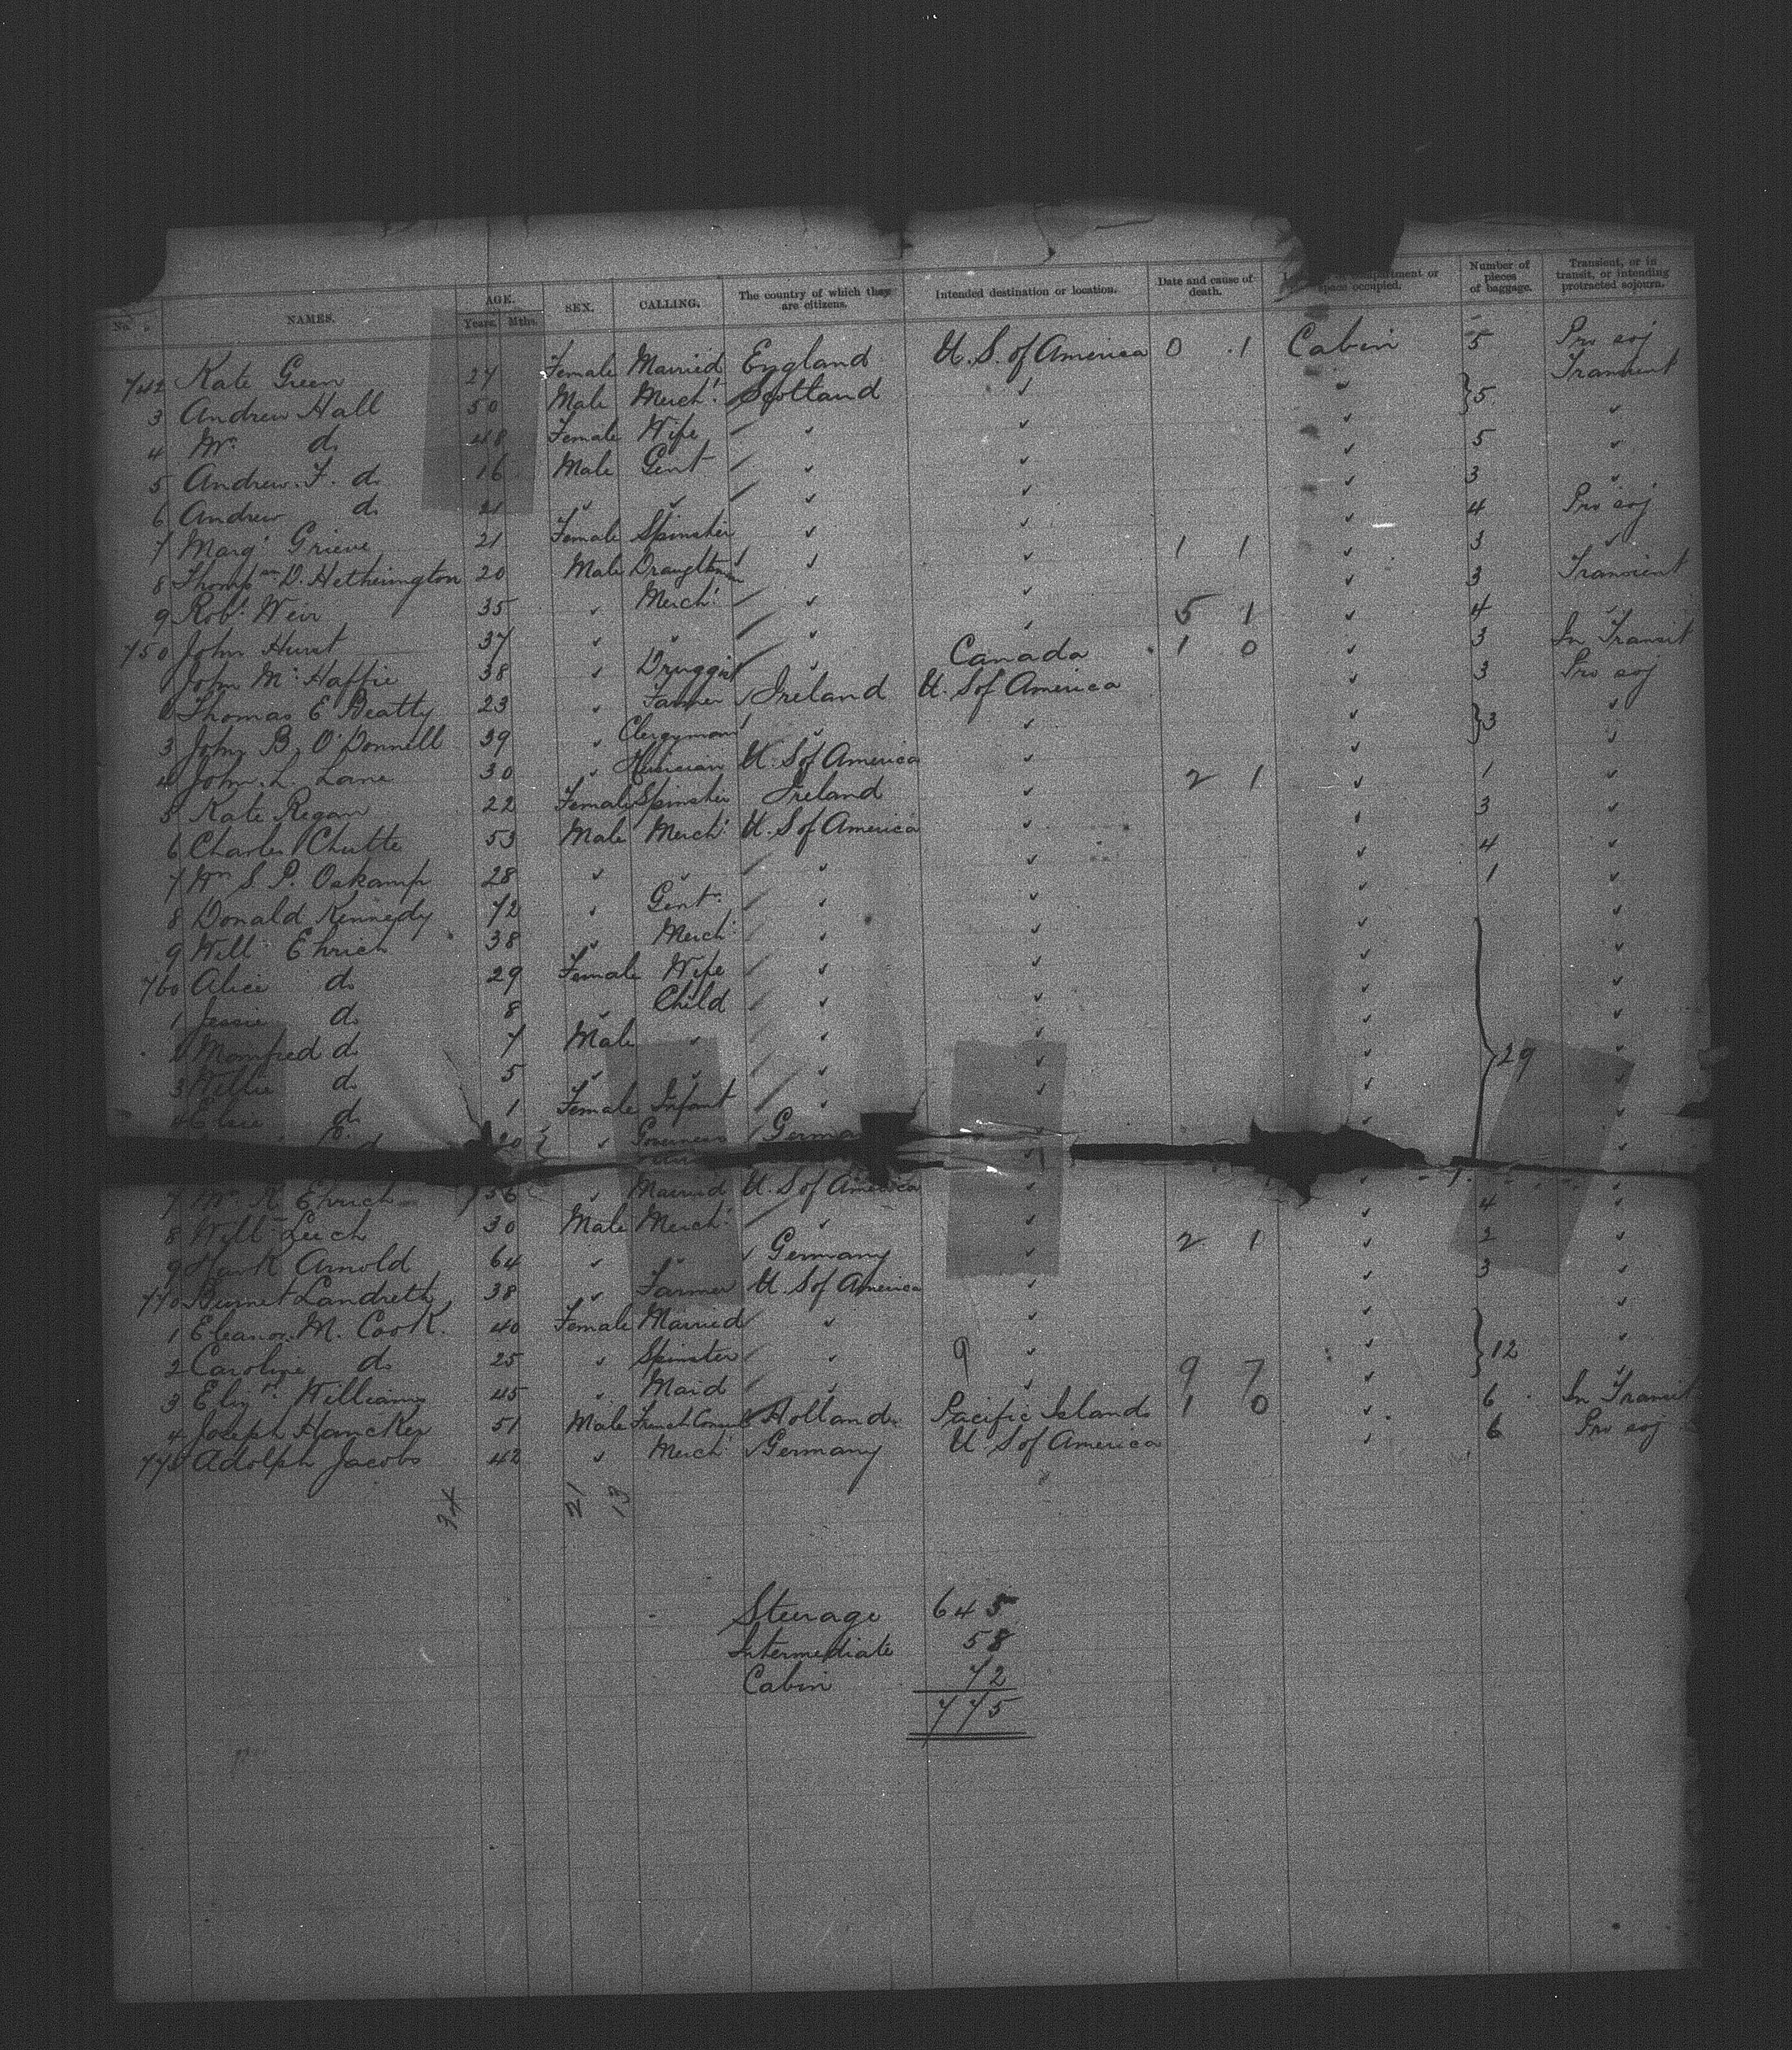 No. NAMES. AGE. Years. Mths. SEX. CALLING. The country of which they are citizens. Intended destination or location. Date and cause of death. compartment or space occupied. Number of pieces of baggage. Transient, or in transit, or intending protracted sojourn.
742 Kate Green 27 Female Married England U. S. of America 0 1 Cabin 5 Pro soj
3 Andrew Hall 50 Male Mercht Scotland ✓ ✓ }5 Transient
4 Mrs do 48 Female Wife ✓ ✓ ✓ ✓
5 Andrew. F. do 16 Male Gent ✓ ✓ ✓ 5 ✓
6 Andrew do 21 ✓ ✓ ✓ ✓ ✓ 3 ✓
7 Margt Grieve 21 Female Spinster ✓ ✓ ✓ 4 Pro soj
8 Thompson D. Hetherington 20 Male Draughtsman ✓ ✓ 1 1 ✓ 3 ✓
9 Robt Weir 35 ✓ Mercht ✓ ✓ ✓ 3 Transient
750 John Hurst 37 ✓ ✓ ✓ ✓ 5 1 ✓ 4 ✓
1 John McHaffie 38 ✓ Druggist ✓ Canada 1 0 ✓ 3 In Transit
2 Thomas E Beatty 23 ✓ Farmer Ireland U. S of America ✓ 3 Pro soj
3 John B. O'Donnell 39 ✓ Clergyman ✓ ✓ ✓ }3 ✓
4 John. L. Lane 30 ✓ U. S of America ✓ ✓ ✓
5 Kate Regan 22 Female Spinster Ireland ✓ 2 1 ✓ 1 ✓
6 Charles Chutte 53 Male Mercht U. S of America ✓ ✓ 3 ✓
7 Wm S. P. Oskamp 28 ✓ ✓ ✓ ✓ ✓ 4 ✓
8 Donald Kennedy 72 ✓ Gent ✓ ✓ ✓ 1 ✓
9 Willm Ehrich 38 ✓ Mercht ✓ ✓ ✓ ✓
760 Alice do 29 Female Wife ✓ ✓ ✓ ✓
1 Jessie do 8 ✓ Child ✓ ✓ ✓ ✓
2 Manfred do 7 Male ✓ ✓ ✓ ✓ }29 ✓
3 Willie do 5 ✓ ✓ ✓ ✓ ✓ ✓
4 Elsie do 1 Female Infant ✓ ✓ ✓ ✓
20 ✓ Governess Germa
7 Mrs R. Ehrich 56 ✓ Married U. S of America ✓ ✓ ✓
8 Willm Leech 30 Male Mercht ✓ ✓ ✓ 4 ✓
9 Arnold 64 ✓ ✓ Germany ✓ 2 1 ✓ 2 ✓
770 Burnet Landreth 38 ✓ Farmer U. S of America ✓ ✓ 3 ✓
1 Eleanor. M. Cook. 40 Female Married ✓ ✓ ✓ }12 ✓
2 Caroline do 25 ✓ Spinster ✓ 9 ✓ ✓ ✓
3 Elizth Williams 45 ✓ Maid ✓ ✓ 9 7 ✓ ✓
4 Joseph Hancker 51 Male French Consul Holland Pacific Islands 1 0 ✓ 6 In Transit
775 Adolph Jacobs 42 ✓ Mercht Germany U S of America ✓ 6 Pro soj
34 21 13
Steerage 645
Intermediate 58
Cabin 72
775